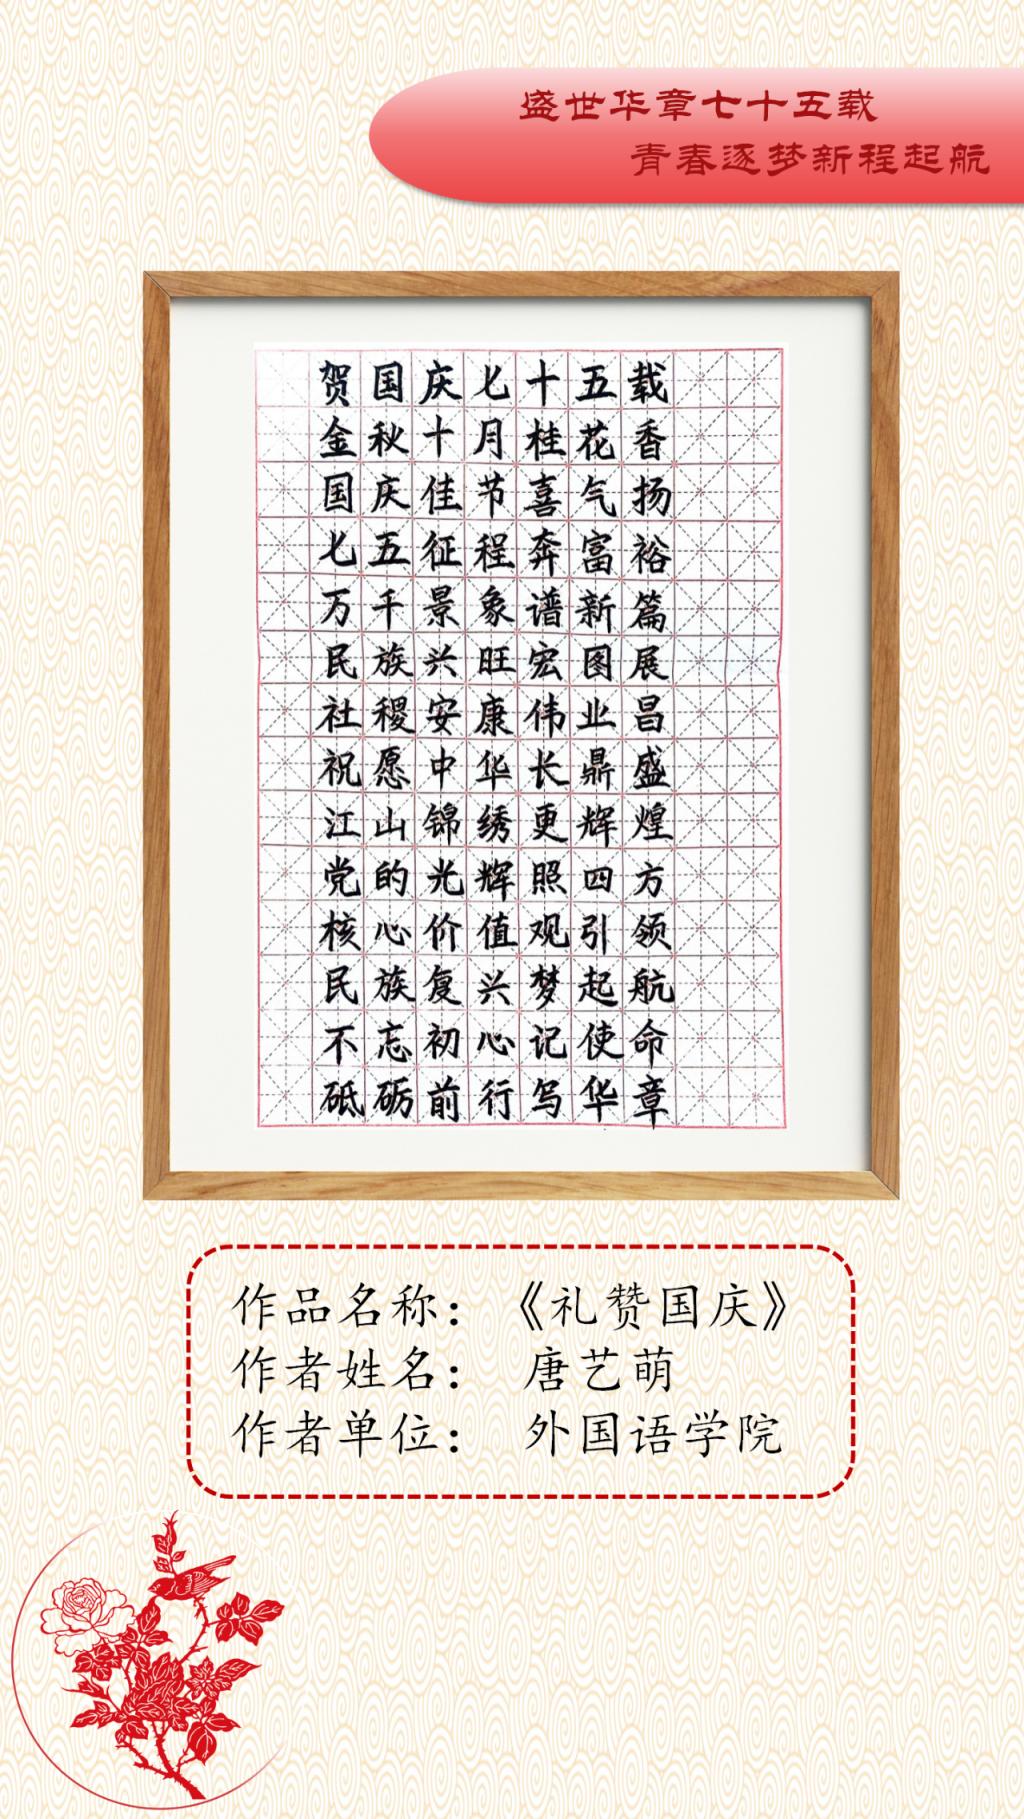 盛世华章七十五载
青春逐梦新程起航
贺国庆七十五载
金秋十月桂花香
国庆佳节喜气扬
七五征程奔富裕
万千景象谱新篇
民族兴旺宏图展
社稷安康伟业昌
祝愿中华长鼎盛
江山锦绣更辉煌
党的光辉照四方
核心价值观引领
民族复兴梦起航
不忘初心记使命
砥砺前行写华章
作品名称：《礼赞国庆》
作者姓名： 唐艺萌
作者单位： 外国语学院